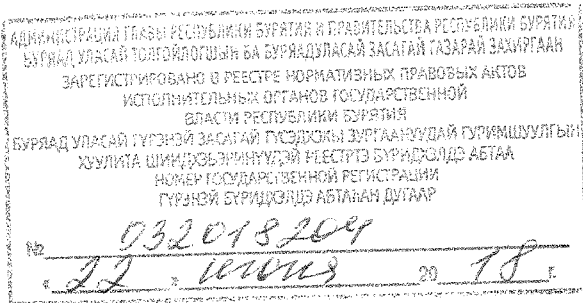 АДМИНИСТРАЦИЯ ГЛАВЫ РЕСПУБЛИКИ БУРЯТИЯ И ПРАВИТЕЛЬСТВА РЕСПУБЛИКИ БУРЯТИЯ
БУРЯАД УЛАСАЙ ТОЛГОЙЛОГШЫН БА БУРЯАД УЛАСАЙ ЗАСАГАЙ ГАЗАРАЙ ЗАХИРГААН
ЗАРЕГИСТРИРОВАНО В РЕЕСТРЕ НОРМАТИВНЫХ ПРАВОВЫХ АКТОВ
ИСПОЛНИТЕЛЬНЫХ ОРГАНОВ ГОСУДАРСТВЕННОЙ
ВЛАСТИ РЕСПУБЛИКИ БУРЯТИЯ
БУРЯАД УЛАСАЙ ГҮРЭНЭЙ ЗАСАГАЙ ГҮСЭДХЭХЫ ЗУРГААНУУДАЙ ГУРИМШУУЛГЫН
ХУУЛИТА ШИИДХЭБЭРИНҮҮДЭЙ РЕЕСТРТЭ БҮРИДХЭЛДЭ АБТАА
НОМЕР ГОСУДАРСТВЕННОЙ РЕГИСТРАЦИИ
ГҮРЭНЭЙ БҮРИДХЭЛДЭ АБТАҺАН ДУГААР
№ 032018204
« 22 » июня 20 18 г.